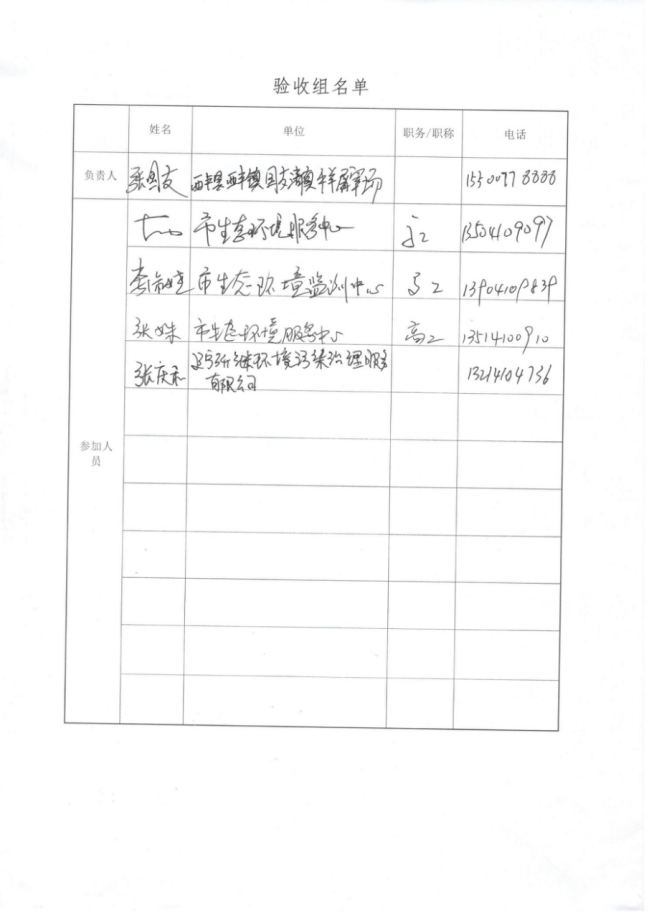 验收组名单
姓名 单位 职务/职称 电话
负责人 张国友 西丰县西丰镇国友清真牛羊屠宰场
市生态环境服务中心 13504109097
市生态环境监测中心 高工
张姝 市生态环境服务中心 高工 13514100910
张庆和 环境污染治理服务 13214104736
有限公司
参加人
员